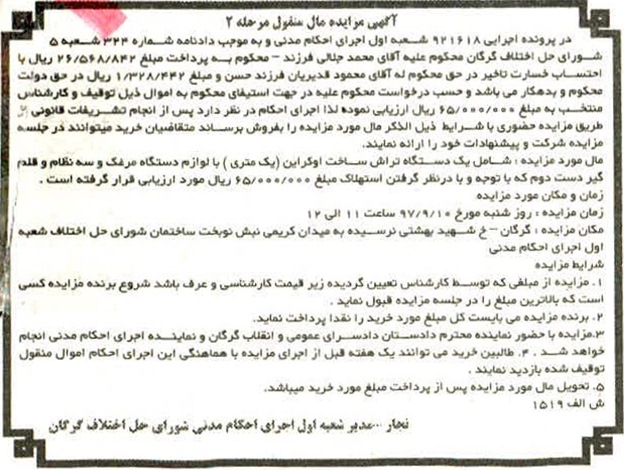 آگهی مزایده مال منقول مرحله ۲
در پرونده اجرایی ۹۲۱۶۱۸ شعبه اول اجرای احکام مدنی و به موجب دادنامه شماره ۳۲۴ شعبه ۵
شورای حل اختلاف گرگان محکوم علیه آقای محمد جلالی فرزند – محکوم به پرداخت مبلغ ۲۶/۵۶۸/۸۴۲ ریال با
احتساب خسارت تاخیر در حق محکوم له آقای محمود قدیریان فرزند حسن و مبلغ ۱/۳۲۸/۴۴۲ ریال در حق دولت
محکوم و بدهکار می باشد و حسب درخواست محکوم علیه در جهت استیفای محکوم به اموال ذیل توقیف و کارشناس
منتخب به مبلغ ۶۵/۰۰۰/۰۰۰ ریال ارزیابی نموده لذا اجرای احکام در نظر دارد پس از انجام تشریفات قانونی از
طریق مزایده حضوری با شرایط ذیل الذکر مال مورد مزایده را بفروش برساند متقاضیان خرید میتوانند در جلسه
مزایده شرکت و پیشنهادات خود را ارائه نمایند.
مال مورد مزایده : شامل یک دستگاه تراش ساخت اوکراین (یک متری ) با لوازم دستگاه مرغک و سه نظام و قلم
گیر دست دوم که با توجه و با درنظر گرفتن استهلاک مبلغ ۶۵/۰۰۰/۰۰۰ ریال مورد ارزیابی قرار گرفته است .
زمان و مکان مورد مزایده
زمان مزایده : روز شنبه مورخ ۹۷/۹/۱۰ ساعت ۱۱ الی ۱۲
مکان مزایده : گرگان – خ شهید بهشتی نرسیده به میدان کریمی نبش نوبخت ساختمان شورای حل اختلاف شعبه
اول اجرای احکام مدنی
شرایط مزایده
۱. مزایده از مبلغی که توسط کارشناس تعیین گردیده زیر قیمت کارشناسی و عرف باشد شروع برنده مزایده کسی
است که بالاترین مبلغ را در جلسه مزایده قبول نماید .
۲. برنده مزایده می بایست کل مبلغ مورد خرید را نقدا پرداخت نماید.
۳.مزایده با حضور نماینده محترم دادستان دادسرای عمومی و انقلاب گرگان و نماینده اجرای احکام مدنی انجام
خواهد شد . ۴. طالبین خرید می توانند یک هفته قبل از اجرای مزایده با هماهنگی این اجرای احکام اموال منقول
توقیف شده بازدید نمایند .
۵. تحویل مال مورد مزایده پس از پرداخت مبلغ مورد خرید میباشد.
ش الف ۱۵۱۹
نجار ...مدیر شعبه اول اجرای احکام مدنی شورای حل اختلاف گرگان